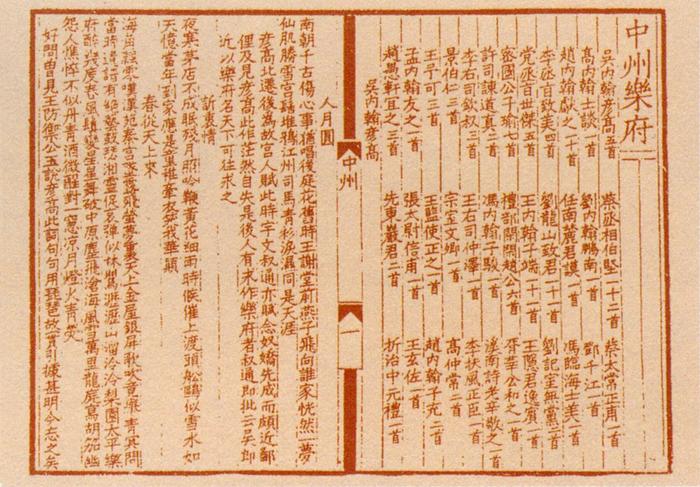 中州樂府
吳內翰彥高五首 蔡丞相伯堅一十二首 蔡太常正甫一首
高內翰士談一首 劉內翰鵬南一首 鄧千江一首
趙內翰獻之一首 任南麓君謨一首 馮臨海士美一首
李丞旨致美四首 劉龍山致君十一首 劉記室無黨二首
党丞旨世傑五首 王內翰子端十一首 王隱君逸賓二首
密國公子瑜七首 禮部閑閑趙公六首 胥莘公和之一首
許司諫道真二首 馮內翰子駿一首 溪南詩老辛敬之一首
李右司欽叔三首 王右司仲澤一首 李扶風正臣一首
景伯仁三首 宗室文卿一首 高仲常一首
王予可三首 王監使正之一首 趙內翰子充二首
孟內翰友之一首 張太尉信甫一首 王玄佐一首
趙愚軒宜之三首 先東巖君二首 折治中元禮一首
吳內翰彥高
中州
一
人月圓
南朝千古傷心事猶唱後庭花舊時王謝堂前燕子飛向誰家恍然一夢
仙肌勝雪宮髻堆鴉江州司馬青衫淚濕同是天涯
彥高北遷後為故宮人賦此時宇文叔通亦賦念奴嬌先成而頗近鄙
俚及見彥高此作茫然自失是後人有求作樂府者叔通即批云吳郎
近以樂府名天下可往求之
訴衷情
夜寒茅店不成眠殘月照吟鞭黃花細雨時候催上渡頭船鷗似雪水如
天憶當年到家應是童稚牽衣笑我華顛
春從天上來
海角飄零嘆漢苑秦宮墜露飛螢夢裏天上金屋銀屏歌吹競舉青冥問
當時遺譜有絕藝鼓瑟湘靈促哀彈似林鶯嚦嚦山溜泠泠梨園太平樂
府醉幾度春風鬢變星星舞破中原塵飛滄海風雪萬里龍庭寫胡笳幽
怨人憔悴不似丹青酒微醒對一窗涼月燈火青熒
好問曾見王防禦公玉說彥高此詞句句用琵琶故實引據甚明今忘之矣